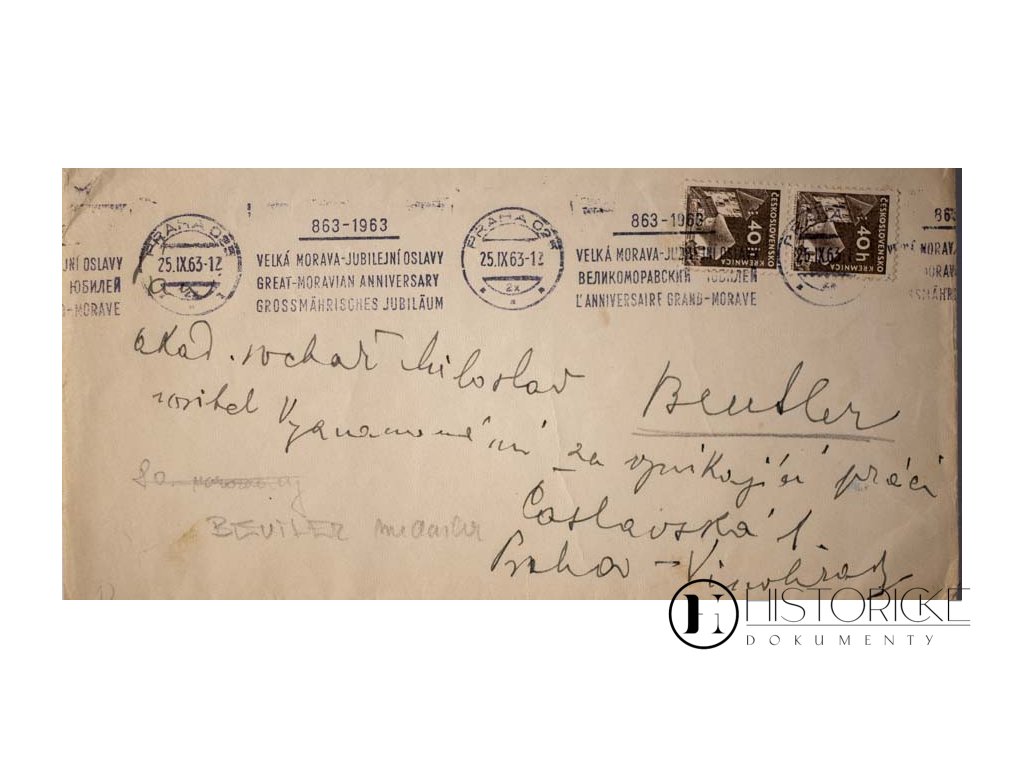 863-1963
863-1963
863
PRAHA 025
25.IX.63-12
2x
VELKÁ MORAVA-JUBILEJNÍ OSLAVY
GREAT-MORAVIAN ANNIVERSARY
GROSSMÄHRISCHES JUBILÄUM
PRAHA 025
25.IX.63-12
2x
VELKÁ MORAVA-JUBILEJNÍ OSLAVY
ВЕЛИКОМОРАВСКИЙ ЮБИЛЕЙ
L'ANNIVERSAIRE GRAND-MORAVE
JNÍ OSLAVY
ЮБИЛЕЙ
D-MORAVE
ČESKOSLOVENSKO
40h
KREMNICA
ČESKOSLOVENSKO
40h
KREMNICA
25.IX.63-1
2x
akad. sochař Miloslav Beutler
nositel Vyznamenání za vynikající práci
Čáslavská 1
Praha - Vinohrady
BEUTLER medailér
HISTORICKÉ
DOKUMENTY